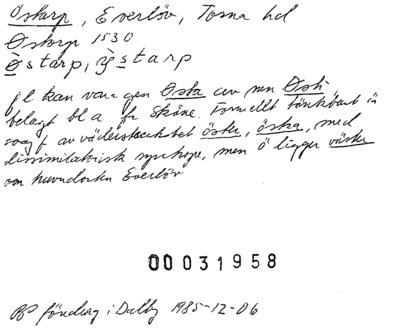 Östarp, Everlöv, Torna hd
Østorp 1530
östarp, ÿstarp
fl kan vara gen Østa av mn Østi
belagt bl a fr Skåne. Formellt tänkbart är
av väderstrecket öster, östra, med
dissimilatorisk, men ö ligger väster
om huvudorten Everlöv
00031958
föredrag i Dalby 1985-12-06